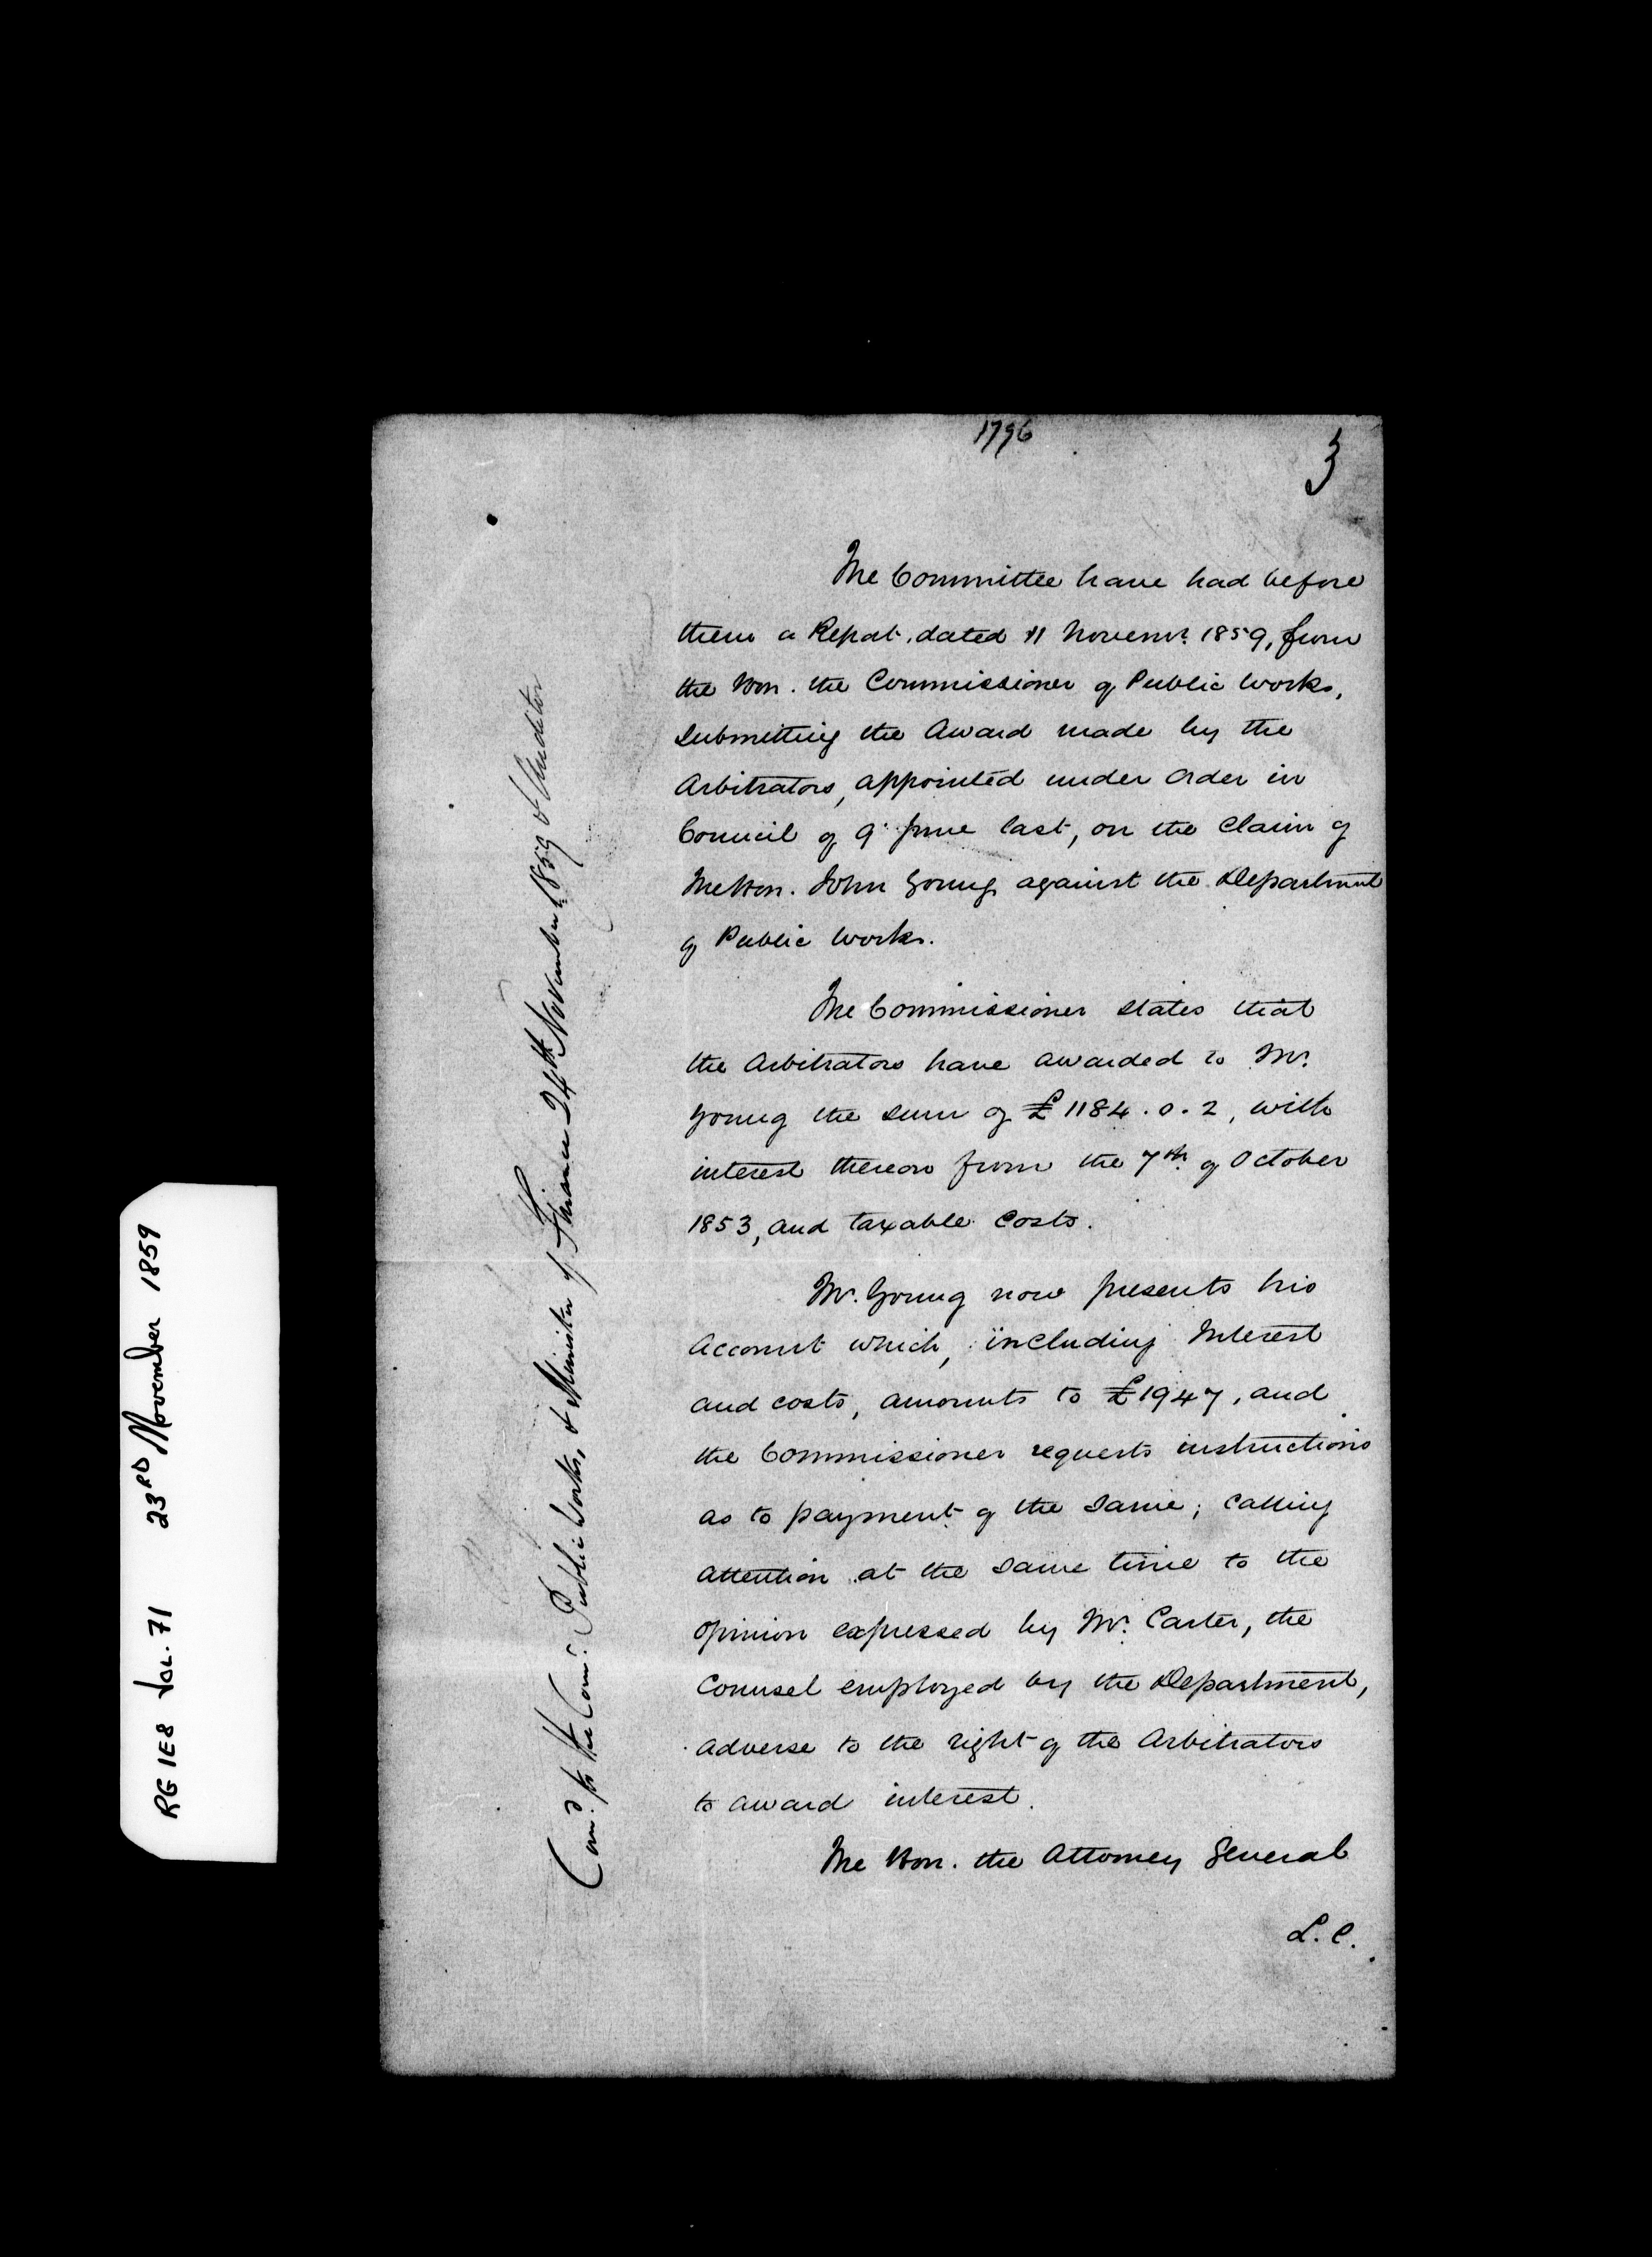 1796
3
The Committee have had before
them a Report, dated 11 Novemr. 1859, from
the Hon. the Commissioner of Public Works,
submitting the Award made by the
Arbitrators, appointed under Order in
Council of 9 June last, on the Claim of
The Hon. John Young against the Department
of Public Works.
The Commissioner states that
the Arbitrators have awarded to Mr.
Young the sum of £1184.0.2, with
interest thereon from the 7th of October
1853, and taxable costs.
Mr. Young now presents his
Account which, including Interest
and costs, amounts to £1947, and
the Commissioner requests instructions
as to payment of the same; calling
attention at the same time to the
opinion expressed by Mr. Carter, the
Counsel employed by the Department,
adverse to the right of the Arbitrators
to award interest.
The Hon. the Attorney General
L.C.
Comd. to the Comr. Public Works, & Minister of Finance 24th November 1859 & Auditor
RG 1E8 Vol. 71 23RD November 1859